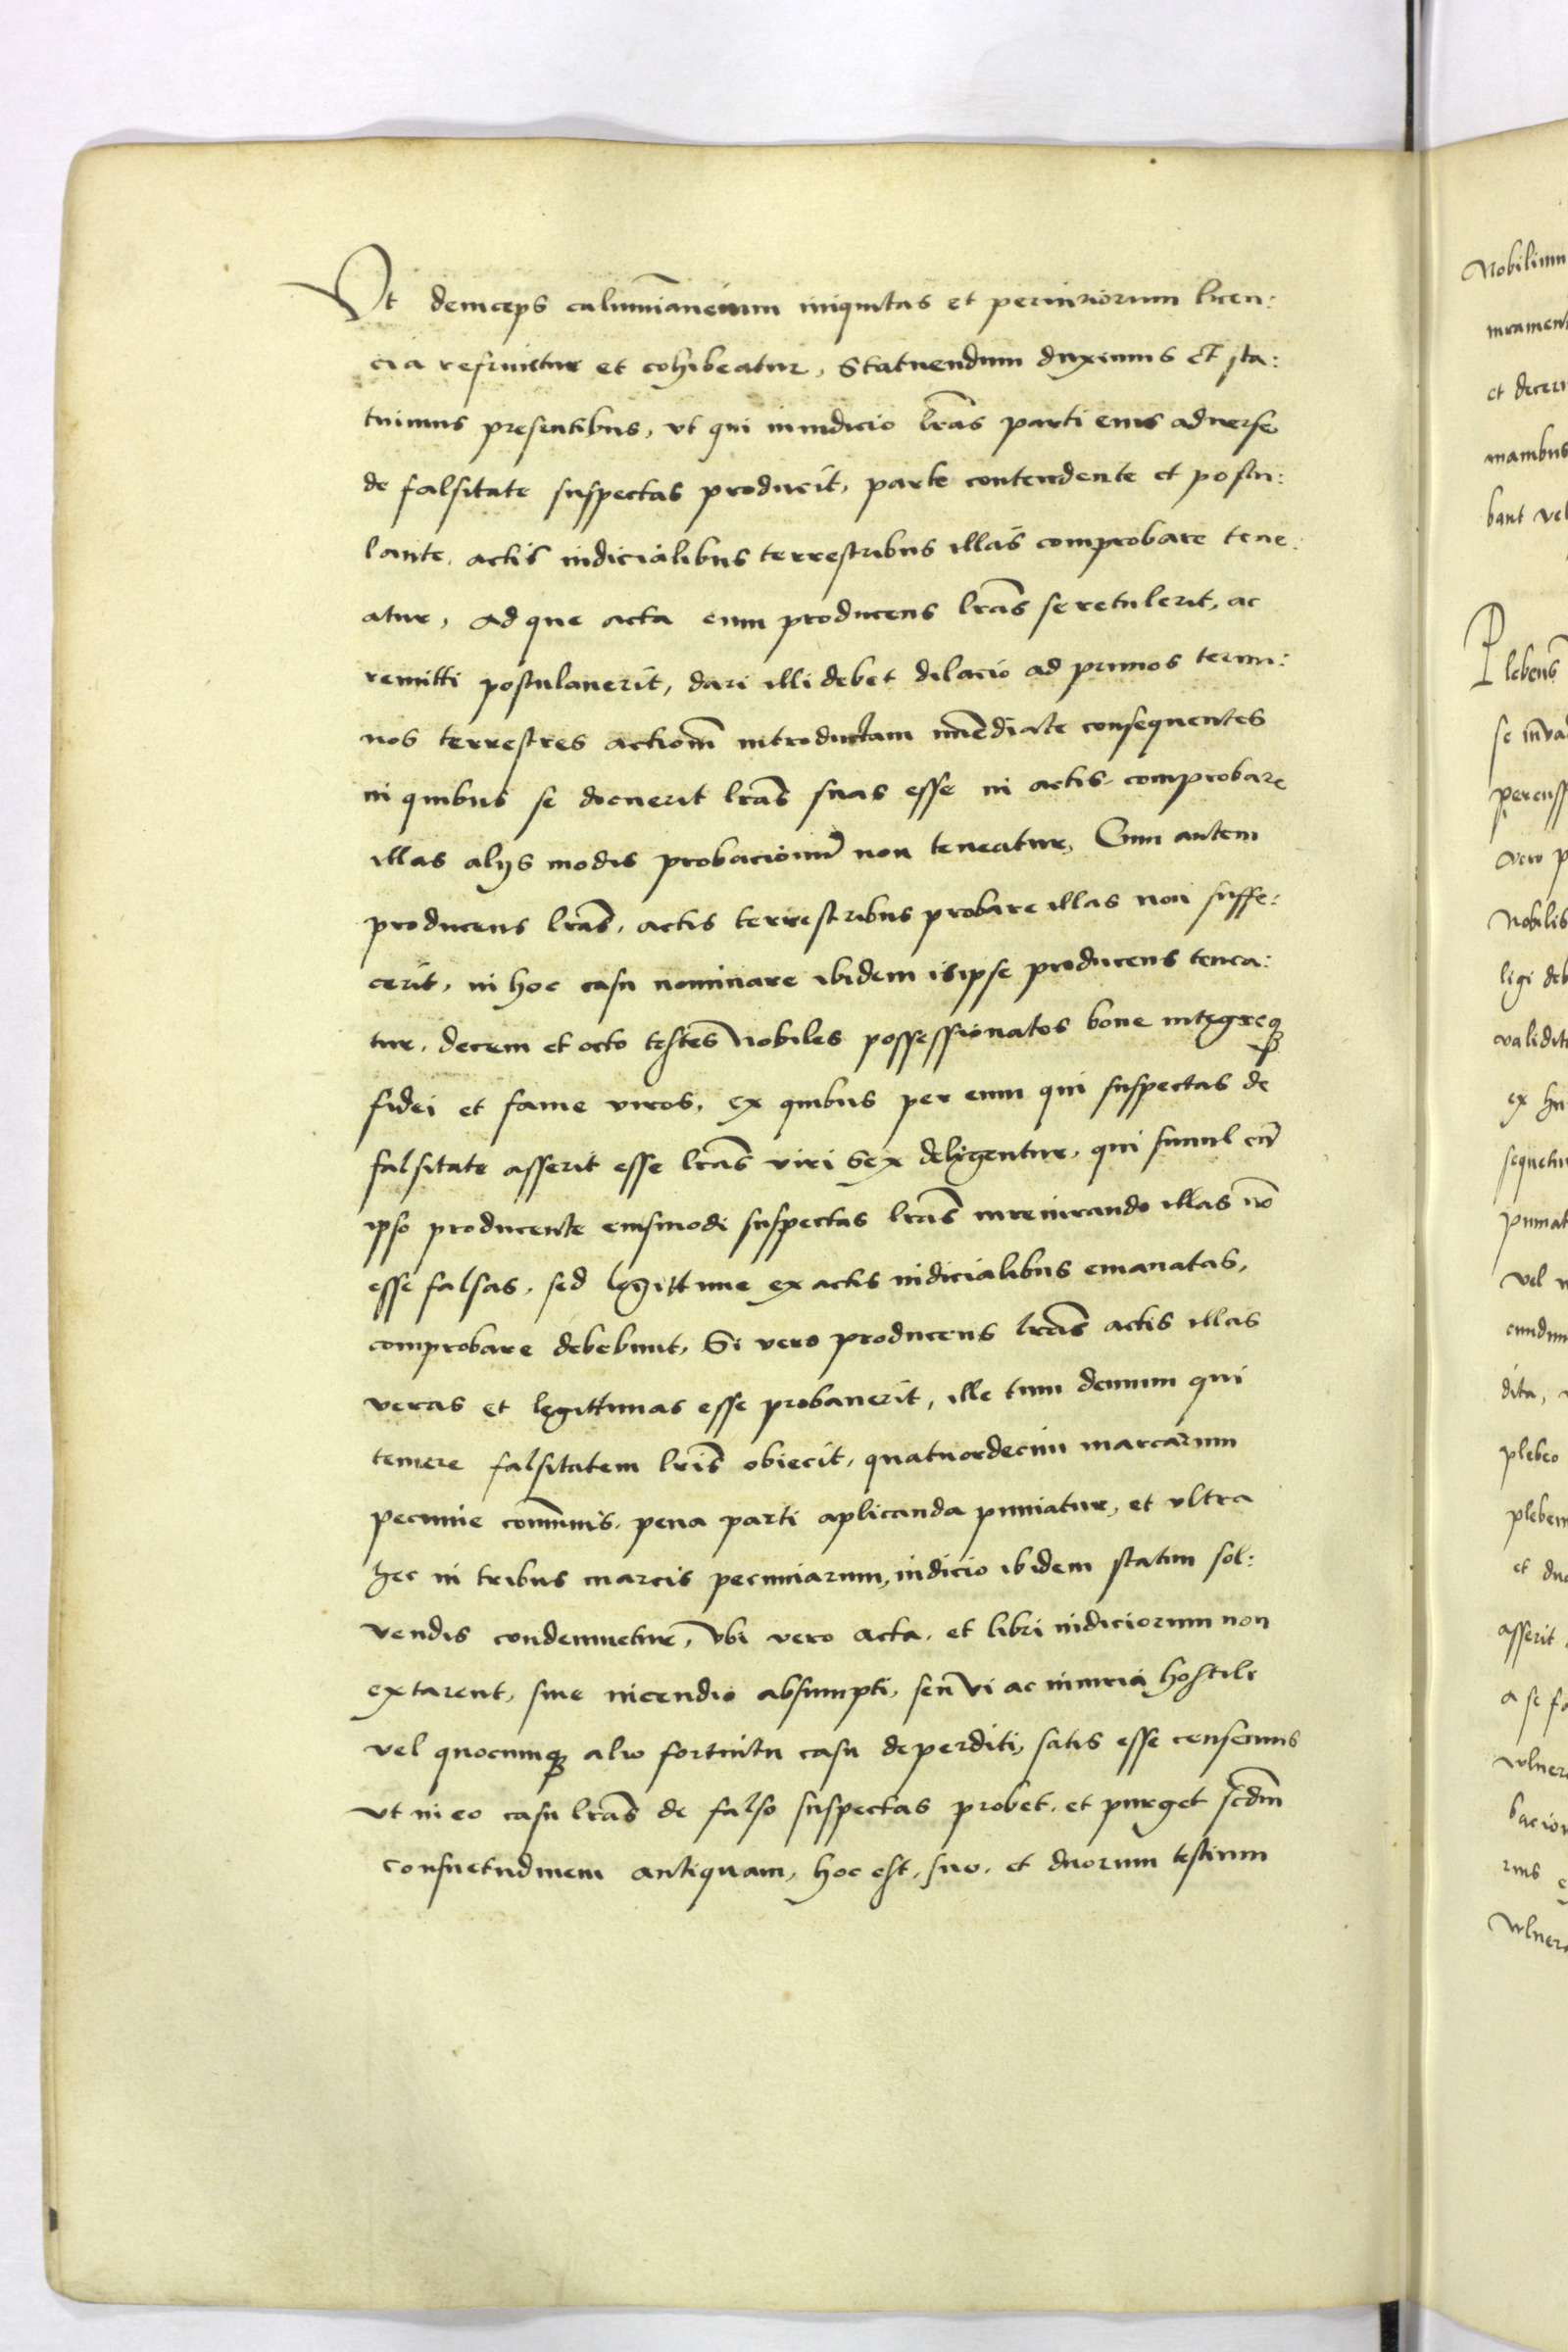 Vt deinceps calumnianciumm iniquitas et periuriorum licen:
cia refrinetur et cohibeatur, Statuendum duximus et sta:
tuimus presentibus, vt qui in iudicio lras parti eius aduerse
de falsitate suspectas producit, parte contendente et postu:
lante, actis iudicialibus terrestribus illas comprobare tene:
atur, Ad que acta cum producens lras se retulerit, ac
remitti postulauerit, dari illi debet dilacio ad primos termi:
nos terrestres actionem introductam immediate consequentes
in quibus se docuerit lras suas esse in actis comprobare
illas alijs modis probacionum non teneatur, Cum autem
producens lras, actis terrestribus probare illas non suffe:
cerit, in hoc casu nominare ibidem is ipse producens tenea:
tur, decem et octo testes Nobiles possessionatos bone integreq3
fidei et fame viros, ex quibus per eum qui suspectas de
falsitate asserit esse lras viri Sex deligentur, qui simul cum
ipso producente eiusmodi suspectas lras iureiurando illas no
esse falsas, sed legittime ex actis iudicialibus emanatas,
comprobare debebunt, Si vero producens lras actis illas
veras et legittimas esse probauerit, ille tum demum qui
temere falsitatem lris obiecit, quatuordecim marcarum
pecunie communis, pena parti aplicanda puniatur, et vltra
hec in tribus marcis pecuniarum, iudicio ibidem statim sol:
vendis condemnetur, Vbi vero acta, et libri iudiciorum non
extarent, siue incendio absumpti, seu vi ac iniuria hostili
vel quocumq3 alio fortuitu casu deperditi, satis esse censemus
vt in eo casu lras de falso suspectas probet, et purget scdm
consuetudinem antiquam, hoc est, suo, et duorum testium